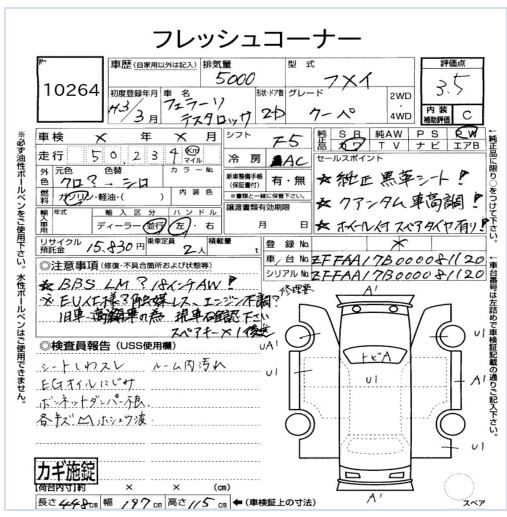 フレッシュコーナー
10264
車歴 (自家用以外は記入) 排気量 5000 型式 フメイ 評価点 3.5
初度登録年月 H3/3月 車名 フェラーリ テスタロッサ 形状・ドア数 2D グレード クーペ 2WD・4WD 内装補助評価 C
車検 × 年 × 月 シフト F5 純正品 SR 純AW PS PW
カワ TV ナビ エアB
走行 50,234 Km マイル 冷房 AC セールスポイント
外色 元色 色替 クロ?→シロ 新車整備手帳(保証書付) 有・無 ☆純正黒革シート!
燃料 ガソリン・軽油・( ) ※書類と一緒に保管下さい。 ☆クアンタム車高調!
輸入車用 年式 輸入区分 ハンドル ディーラー・並行 左・右 譲渡書類有効期限 ☆ホイール付スペアタイヤ有り!
リサイクル預託金 15,830円 乗車定員 2人 積載量 t 登録No. ×
車台No. ZFFAA17B000081120
シリアルNo. ZFFAA17B000081120
◎注意事項 (修復・不具合箇所および状態等)
☆BBS LM?18インチAW!
※EU仕様?触媒レス、エンジン不調?
旧車 高額車の為 現車確認下さい
スペアキー×1後送
◎検査員報告 (USS使用欄)
シートしわスレ ルーム内汚れ
EGオイルにじみ
ボンネットダンパー不良
各キズ凹ホシュウ波
修理要 A1
UA1
トビA
U1 U1 U1
U1
A1
カギ施錠
(荷台内寸) × × (cm)
長さ 448cm 幅 197cm 高さ 115cm ←(車検証上の寸法) スペア
※必ず油性ボールペンをご使用下さい。水性ボールペンはご使用できません。
←純正品に限り○をつけて下さい。
←車台番号は左詰めで車検証記載の通りご記入下さい。